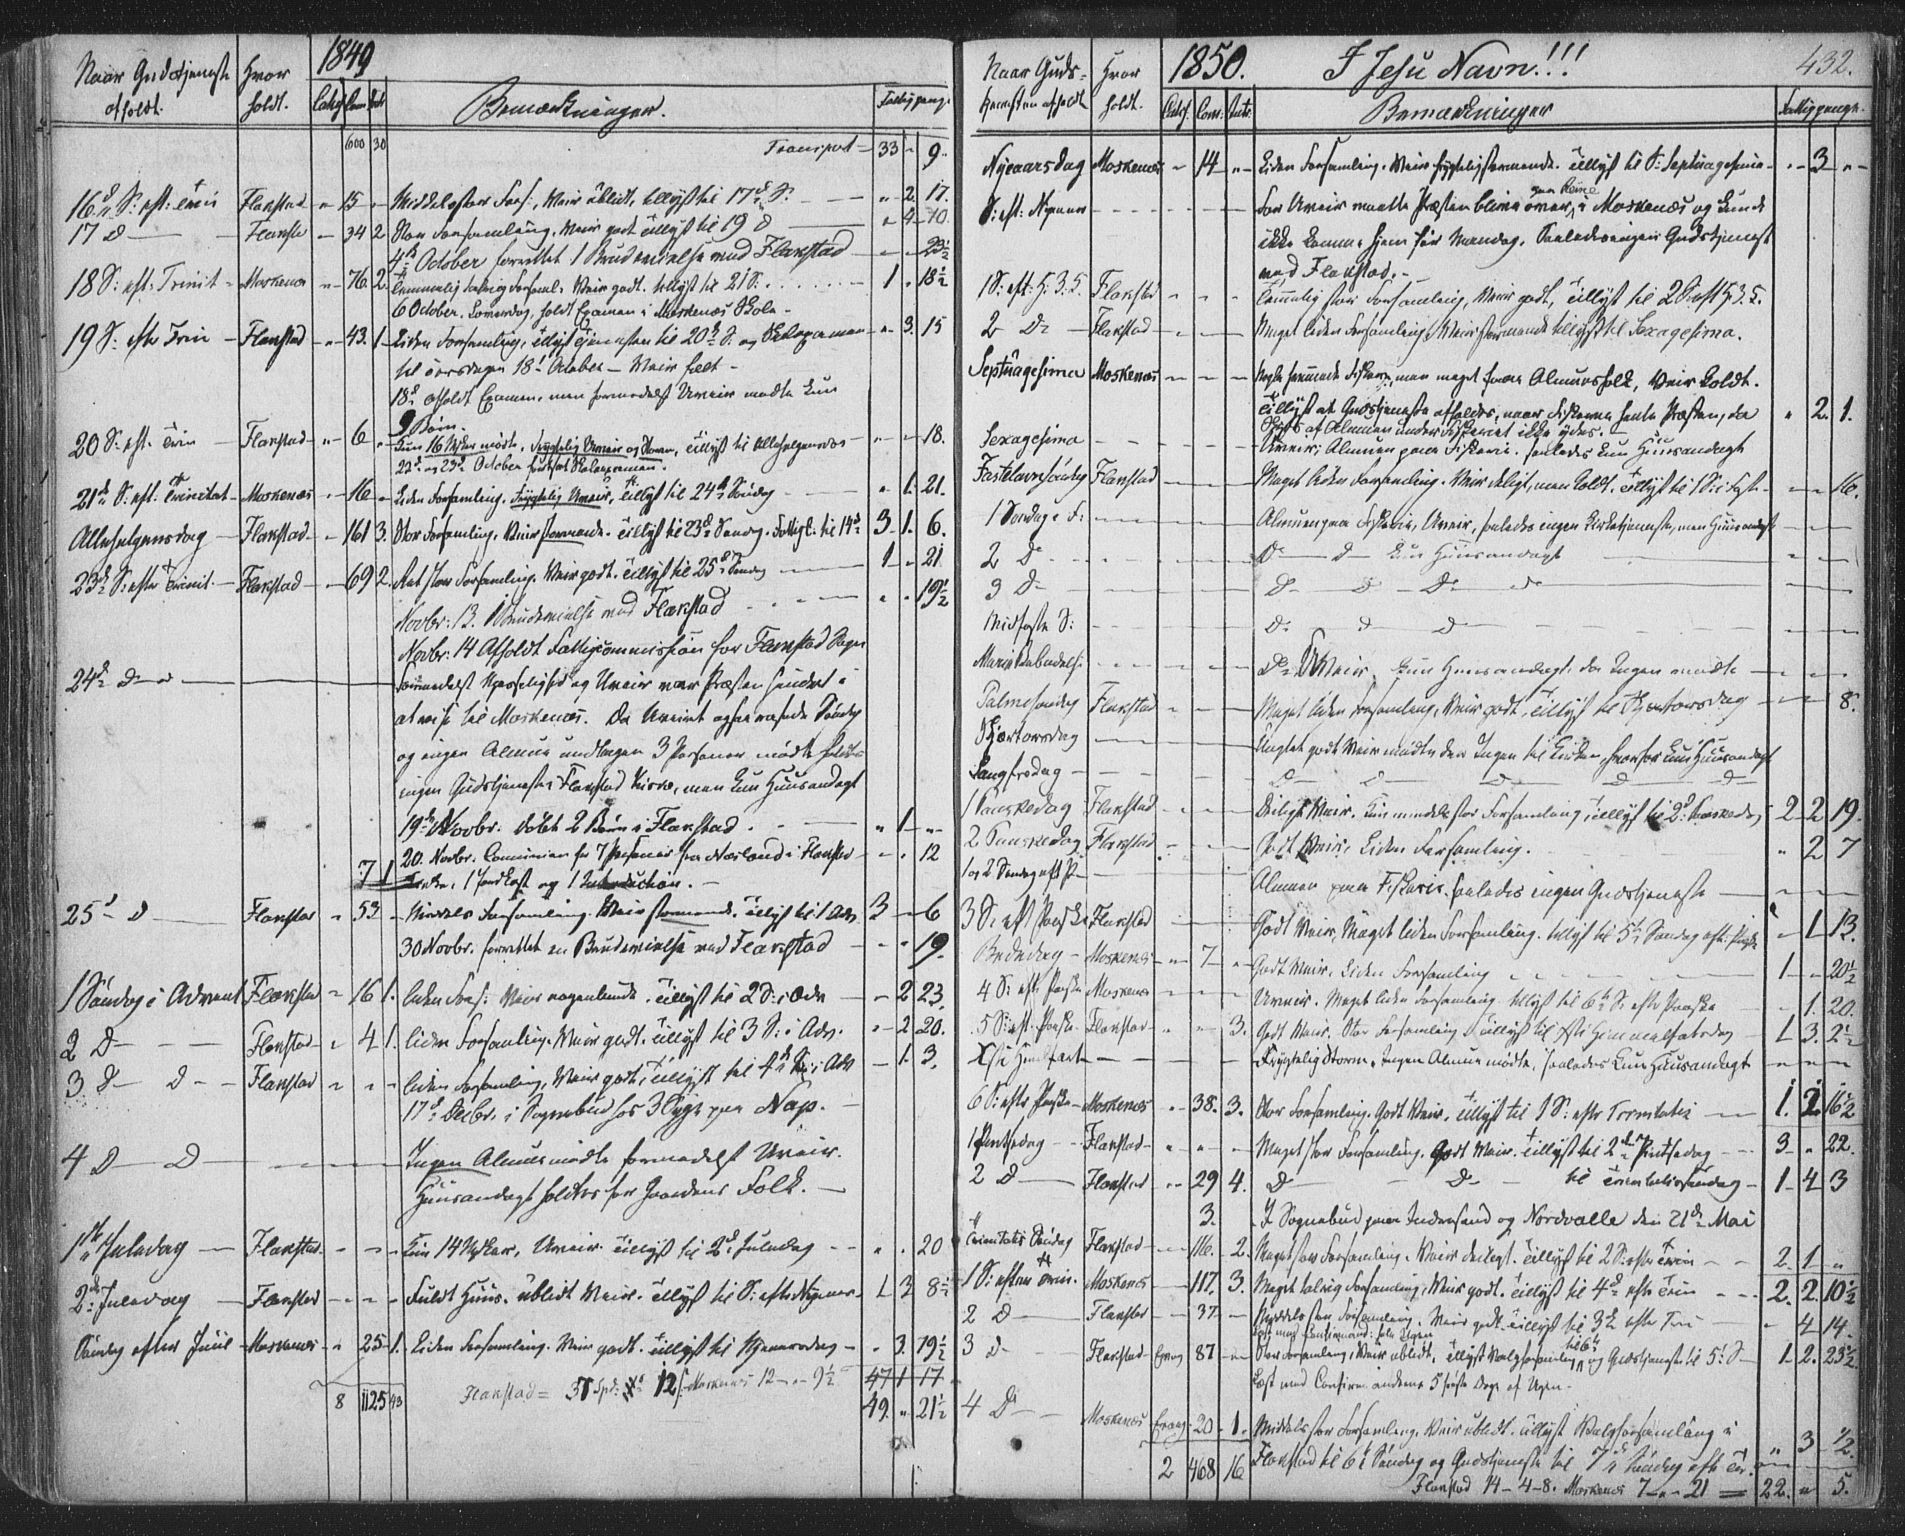 1849
Naar Gudstjeneste afholdt. Hvor holdt. Bemærkninger.
600 30 Transport 33 - 9.
16de S: eft: Trin Flakstad " 15 " Middelstor Fors:, Veir ublidt, tillyst til 17de S: " 2. 17.
17 D Flakstad 34 2 Stor Forsamling, Veir godt tillyst til 19 D " 4 10
4de October forrettet 1 Brudevielse ved Flakstad 23½
18 S: eft: Trinit Moskenæs " 76. 2. Temmelig talrig Forsaml. Veir godt. tillyst til 21 S: 1 " 18½
6 October, Løverdag, holdt Examen i Moskenæs Skole
19 S: efter Trin Flakstad " 43. 1 Liden Forsamling, tillyst til 20de S: og Skoleexamen " 3. 15
til Torsdagen 18de October Veir
18de afholdt Examen, men formedelst Uveir mødte kun
9 Børn.
20 S: eft. Trin Flakstad " 6 " Kun 16 mødte. Frygtelig Uveir og Storm, tillyst til Allehelgensdag 18.
22de og 23de October fortsat Skoleexamen.
21de S: eft. Trinitat Moskenæs 16 Liden Forsamling. Frygtelig Uveir, tillyst til 24de Søndag " 1. 21.
Allehelgensdag Flakstad 161 3. Stor Forsamling. Veir stormende. tillyst til 23de Søndag. til 14de 3. 1. 6.
23de S: efter Trinit. Flakstad 69 2. Ret stor Forsamling. Veir godt. tillyst til 25de Søndag 1 " 21
Novbr: 13. 1 Brudevielse ved Flakstad " " 19½
Novbr: 14 Afholdt Fattigcommission for Flakstad Sogn
24de D Formedelst Upasselighed og Uveir var Præsten hindret i
at reise til Moskenæs. Da Uveiret ogsaa rasede Søndag
og ingen Almue undtagen 3 Personer mødte holdtes
ingen Gudstjeneste i Flakstad Kirke, men kun Huusandagt
19de Novbr: døbt 2 Børn i Flakstad. " 1 "
7 1 20. Novbr. Communion for 7 Personer fra Nærland i Flakstad " " 12
Kirke, 1 Jordkast og 1 Introduction.
25de D Flakstad " 53 Middels Forsamling. Veir stormende. tillyst til 1 Adv. 3 " 6
30 Novbr. forrettet en Brudevielse ved Flakstad 19.
1 Søndag i Advent Flakstad " 16 1. liden Fors: Veir nogenlunde. tillyst til 2 S: i Adv " 2 23.
2 D Flakstad " 4 1. liden Forsamling. Veir godt. tillyst til 3 S: i Adv. " 2 20.
3 D D Flakstad " " " liden Forsamling, Veir godt, tillyst til 4de S: i Adv 1. 3.
17de Decbr. i Sognebud hos 3 Syge paa Nap.
4 D D Ingen Almue mødte formedelst Uveir.
Huusandagt holdtes for Gaardens Folk.
1ste Juledag Flakstad Kun 14 Uveir. tillyst til 2de Juledag " " 20
2den Juledag Flakstad Fuldt Huus. ublidt Veir. tillyst til S: efter Nytaar 1 3 8½
Søndag efter Juul Moskenæs " 25 1. Liden Forsamling. Veir godt. tillyst til Nytaarsdag " 3. 19½
47 1 17
8 1125 43 Flakstad = 37 Spd: 12 s. Moskenæs 12 " 9½ 49. " 21½
1850. I Jesu Navn!!! 432.
Naar Gudstjenesten afholdt Hvor holdt. Bemærkninger
Nyeaarsdag Moskenæs 14 Liden Forsamling. Veir frygtelig stormende. tillyst til S: Septuagesima " 3 "
S: eft: Nyeaar For Uveir maatte Præsten blive over, i Moskenæs og kunde
ikke komme hjem før Mandag. Saaledes ingen Gudstjeneste
ved Flakstad.
1 S: eft: H: 3 K. Flakstad Temmelig stor Forsamling, Veir godt, tillyst til 2 S: eft H 3 K.
2 D Flakstad Meget liden Forsamling, Veir stormende tillyst til Sexagesima.
Septuagesima Moskenæs Nogle fremmede Fiskere, men meget faae Almuesfolk, Veir koldt.
tillyst at Gudstjeneste afholdes, naar Fiskerne hente Præsten, da " 2. 1.
af Almuen under Fiskeriet ikke ydes.
Sexagesima Uveir; Almuen paa Fiskeri. saaledes kun Huusandagt
Fastelavnsøndag Flakstad Meget liden Forsamling. Veir deiligt, men koldt. tillyst til 1 S: i Faste 16.
1 Søndag i F: Almuen paa Fiskeri, Uveir, saaledes ingen Kirketjeneste, men Huusandagt
2 D D D kun Huusandagt
3 D D D D
Midfaste S: D D D
Mariæ Bebudelse D Uveir. kun Huusandagt, da Ingen mødte
Palmesøndag Flakstad Meget liden Forsamling, Veir godt, tillyst til Skjærtorsdag 8.
Skjærtorsdag Uagtet godt Veir mødte der Ingen til Kirken, hvorfor kun Huusandagt
Langfredag D D D D D
1 Paaskedag Flakstad Deiligt Veir. Kun middelstor Forsamling, tillyst til 2de Paaskedag 2 2 19.
2 Paaskedag Flakstad Godt Veir. Liden Forsamling. " 2 7
1 og 2 Søndag eft P Almuen paa Fiskeri. saaledes ingen Gudstjeneste
3 S: eft Paaske Flakstad Godt Veir, Meget liden Forsamling. tillyst til 5te Søndag eft: Paaske " 1 13.
Bededag Moskenæs 7 Godt Veir. Liden Forsamling 1 " 20½
4 S: eft Paaske Moskenæs Uveir. Meget liden Forsamling. tillyst til 6te S: efter Paaske 1. 20.
5 S: eft Paaske Flakstad 3. Godt Veir. Stor Forsamling tillyst til Chr: Himmelfartsdag 1 3. 2½
Chr: Himlfart Frygtelig Storm, Ingen Almue mødte, saaledes kun Huusandagt
6 S: efter Paaske Moskenæs " 38. 3. Stor Forsamling. Godt Veir. tillyst til 1 S: efter Trinitatis 1. 2. 16½
1 Pintsedag Flakstad " " " Meget stor Forsamling. Godt Veir. tillyst til 2den Pintsedag 3 " 22.
2 D Flakstad " 29 4. D D til Trinitatissøndag 1 4 3
3. I Sognebud paa Indersand og Nordvalle den 21de Mai
Trinitatis Søndag Flakstad 116. 2. Meget stor Forsamling. Veir deiligt. tillyst til 2 S: efter Trin 2. 1 "
1 S: efter Trin. Moskenæs 117. 3. Meget talrig Forsamling, Veir godt. tillyst til 4de eft Trin 2. 2. 10½
2 D Flakstad 37 Middels stor Forsamling. Veir godt. tillyst til 3de efter Tri " 4 14.
3 D Flakstad 87 Stor Forsamling, Veir ublidt, tillyst Valgforsamling til 6te og Gudstjeneste til 5te S 1 2. 23½
Læst med Confirmanderne 5 sidste Dage af Ugen.
4 D Moskenæs 20 1. Middelstor Forsamling. Veir ublidt. tillyst Valgforsamling i
Flakstad til 6te Søndag og Gudstjeneste til 7de Søndag eft Tr. " 3 ½
2 468 16
Flakstad 14 - 4 - 8. Moskenæs 7 - " - 21 = 22. " 5.